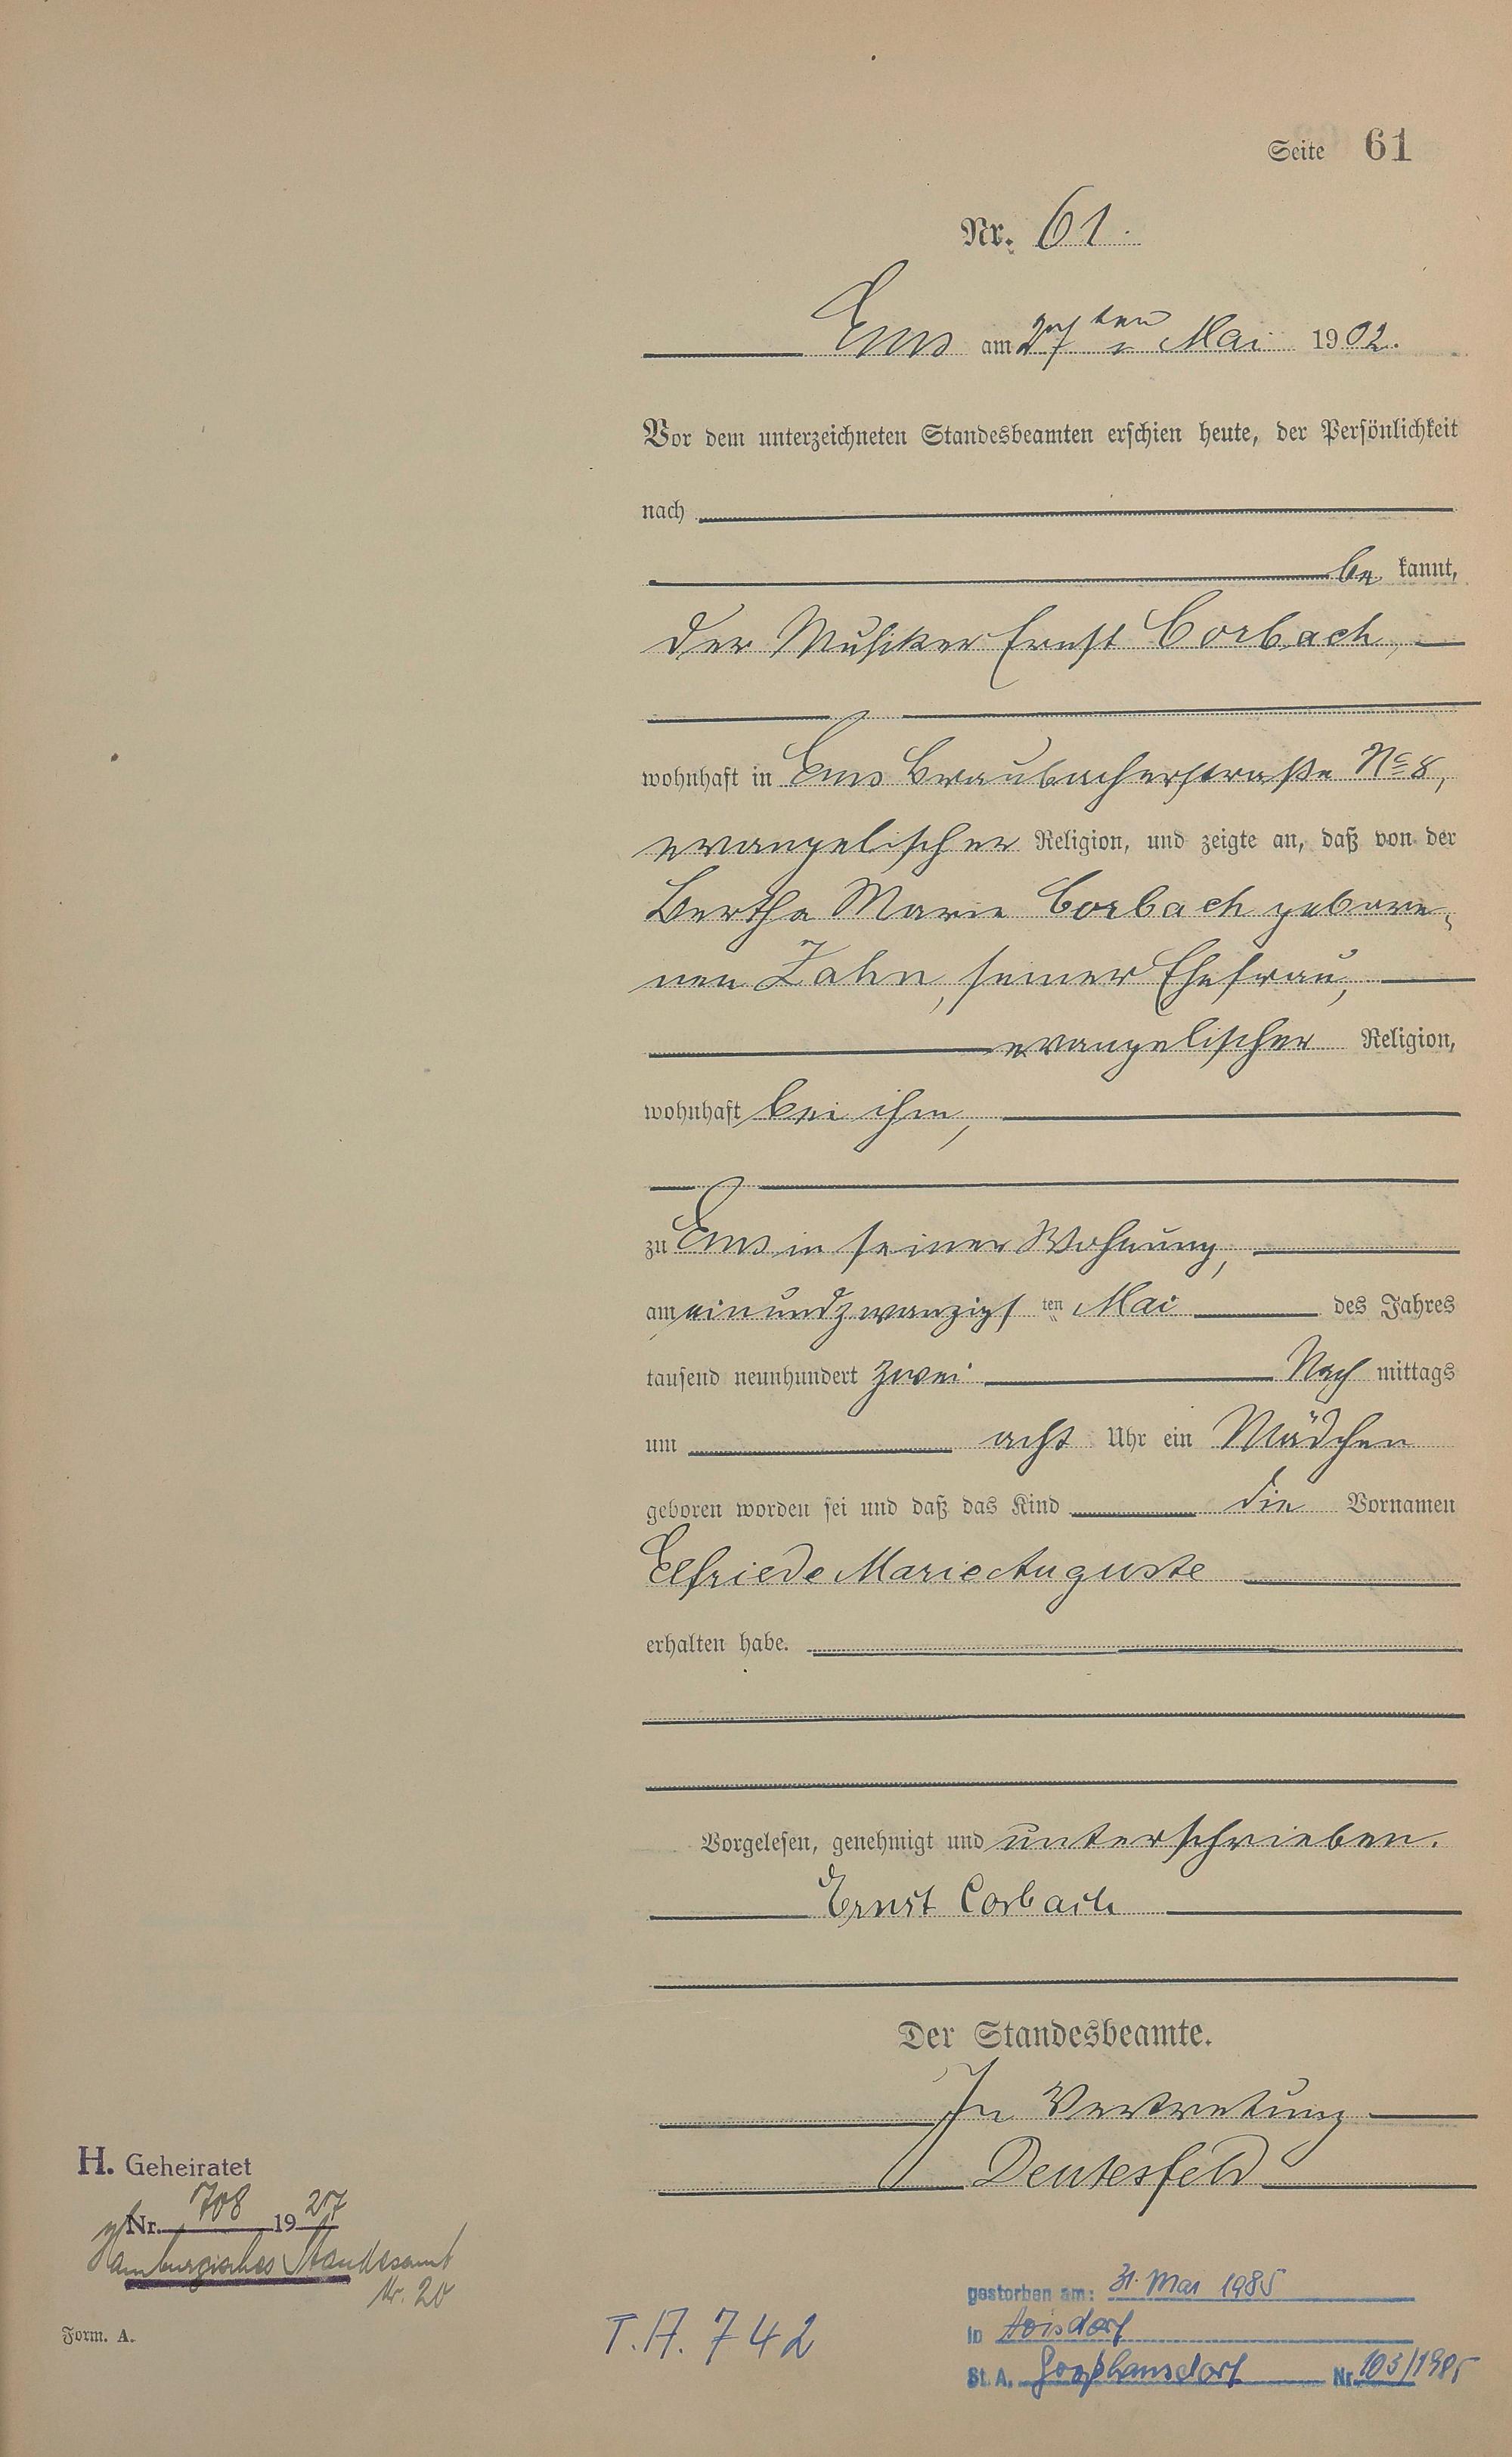 Seite 61
Nr. 61.
Ems am 27ten Mai 1902.
Vor dem unterzeichneten Standesbeamten erschien heute, der Persönlichkeit
nach
be kannt,
der Musiker Ernst Corbach,
wohnhaft in Ems Braubacherstraße No 8,
evangelischer Religion, und zeigte an, daß von der
Bertha Marie Corbach gebore-
nen Zahn, seiner Ehefrau,
evangelischer Religion,
wohnhaft bei ihm,
zu Ems in seiner Wohnung,
am einundzwanzigsten Mai des Jahres
tausend neunhundert zwei Nach mittags
um acht Uhr ein Mädchen
geboren worden sei und daß das Kind die Vornamen
Elfriede Marie Auguste
erhalten habe.
Vorgelesen, genehmigt und unterschrieben.
Ernst Corbach
Der Standesbeamte.
In Vertretung
Deutesfeld
H. Geheiratet
Nr. 708 1927
Hamburgisches Standesamt
Nr. 20
Form. A.
T.A. 742
gestorben am: 31. Mai 1985
in Hoisdorf
St. A. Großhansdorf Nr. 103/1985